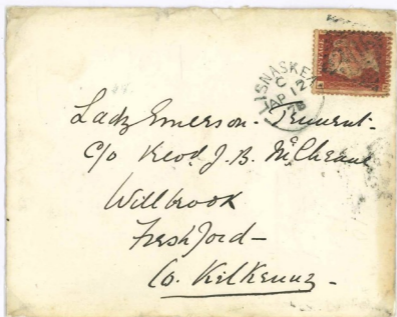 LISNASKEA
C
AP 12
78
Lady Emerson - Tennent -
c/o Revd J. B. McCheane
Willbrook
Freshford -
Co. Kilkenny -